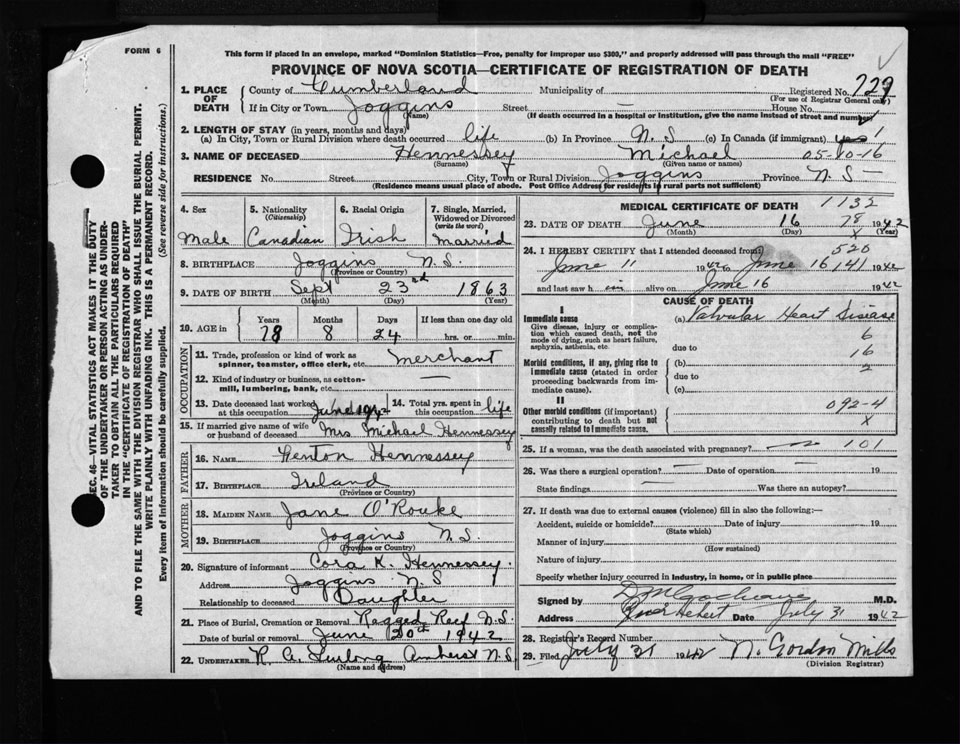 FORM 6
This form if placed in an envelope, marked "Dominion Statistics—Free, penalty for improper use $300," and properly addressed will pass through the mail "FREE"
PROVINCE OF NOVA SCOTIA—CERTIFICATE OF REGISTRATION OF DEATH
SEC. 46—VITAL STATISTICS ACT MAKES IT THE DUTY
OF THE UNDERTAKER OR PERSON ACTING AS UNDER-
TAKER TO OBTAIN ALL THE PARTICULARS REQUIRED
IN THE "CERTIFICATE OF REGISTRATION OF DEATH"
AND TO FILE THE SAME WITH THE DIVISION REGISTRAR WHO SHALL ISSUE THE BURIAL PERMIT.
WRITE PLAINLY WITH UNFADING INK. THIS IS A PERMANENT RECORD.
Every item of Information should be carefully supplied. (See reverse side for instructions.)
1. PLACE OF DEATH County of Cumberland Municipality of Registered No. 729
(For use of Registrar General only)
If in City or Town Joggins Street — House No.
(Name) (If death occurred in a hospital or Institution, give the name instead of street and number)
2. LENGTH OF STAY (in years, months and days)
(a) In City, Town or Rural Division where death occurred life (b) In Province N.S (c) In Canada (if immigrant) yes
3. NAME OF DECEASED Hennessey Michael 05-10-16
(Surname) (Given name or names)
RESIDENCE No. Street City, Town or Rural Division Joggins Province N.S —
(Residence means usual place of abode. Post Office Address for residents in rural parts not sufficient)
4. Sex Male
5. Nationality (Citizenship) Canadian
6. Racial Origin Irish
7. Single, Married, Widowed or Divorced (write the word) married
8. BIRTHPLACE Joggins N.S.
(Province or Country)
9. DATE OF BIRTH Sept 23rd 1863
(Month) (Day) (Year)
10. AGE in Years Months Days If less than one day old
78 8 24 hrs. or min.
OCCUPATION
11. Trade, profession or kind of work as spinner, teamster, office clerk, etc. merchant
12. Kind of industry or business, as cotton-mill, lumbering, bank, etc. —
13. Date deceased last worked at this occupation June 1942 14. Total yrs. spent in this occupation life
15. If married give name of wife or husband of deceased Mrs Michael Hennessey
FATHER
16. NAME Hennessey
17. BIRTHPLACE Ireland
(Province or Country)
MOTHER
18. MAIDEN NAME Jane O'Rouke
19. BIRTHPLACE Joggins N.S.
(Province or Country)
20. Signature of informant Cora K. Hennessey.
Address Joggins N.S
Relationship to deceased Daughter
21. Place of Burial, Cremation or Removal Ragged Reef N.S.
Date of burial or removal June 20th 1942
22. UNDERTAKER R. A. Amherst N.S.
(Name and address)
MEDICAL CERTIFICATE OF DEATH 1132
23. DATE OF DEATH June 16 78 1942
(Month) (Day) X (Year)
24. I HEREBY CERTIFY that I attended deceased from 520
June 11 1942 to June 16 141 1942
and last saw him alive on June 16 1942
CAUSE OF DEATH
I
Immediate cause
Give disease, injury or complication which caused death, not the mode of dying, such as heart failure, asphyxia, asthenia, etc.
(a) Valvular Heart Disease
6
due to 16
Morbid conditions, if any, giving rise to immediate cause (stated in order proceeding backwards from immediate cause).
(b) 2
due to
(c)
II
Other morbid conditions (if important) contributing to death but not causally related to immediate cause.
092-4
X
25. If a woman, was the death associated with pregnancy? — 101
26. Was there a surgical operation? — Date of operation — 19
State findings — Was there an autopsy?
27. If death was due to external causes (violence) fill in also the following:—
Accident, suicide or homicide? Date of injury 19
(State which)
Manner of injury
(How sustained)
Nature of injury
Specify whether injury occurred in industry, in home, or in public place
Signed by D M Cochrane M.D.
Address River Hebert Date July 31 1942
28. Registrar's Record Number
29. Filed July 31 1942 N. Gordon Mills
(Division Registrar)